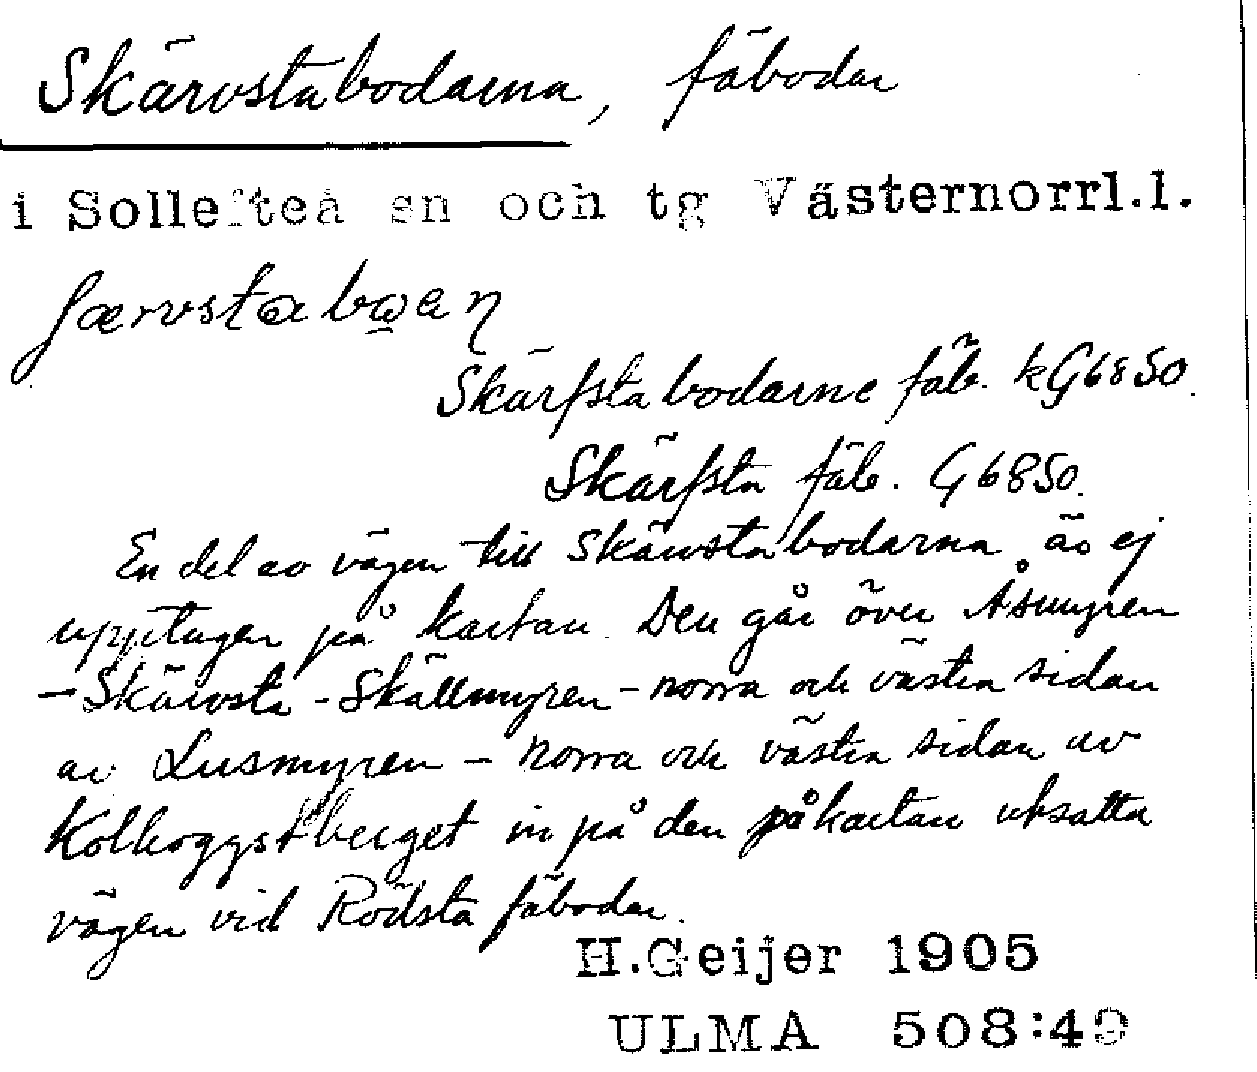 Skärvstabodarna, fäbodar
i Sollefteå sn och tg Västernorrl.l.
Skärfstabodarne fäb. kG6850.
Skärfsta fäb. G6850.
En del av vägen till Skärvstabodarna är ej
upptagen på kartan. Den går över Åsmyren
- Skärvsta - Skällmyren - norra och västra sidan
av Lusmyren - norra och västra sidan av
Kolhoggstberget in på den på kartan utsatta
vägen vid Rödsta fäbodar.
H.Geijer 1905
ULMA 508:49